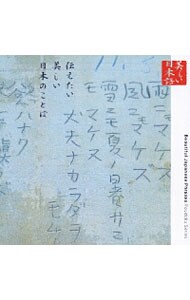 美しい
日本語
Beautiful Japanese Phrases
雨ニモマケズ
風ニモマケズ
雪ニモ夏ノ暑サニモ
マケヌ
丈夫ナカラダヲ
モチ
慾ハナク
伝えたい
美しい
日本のことば